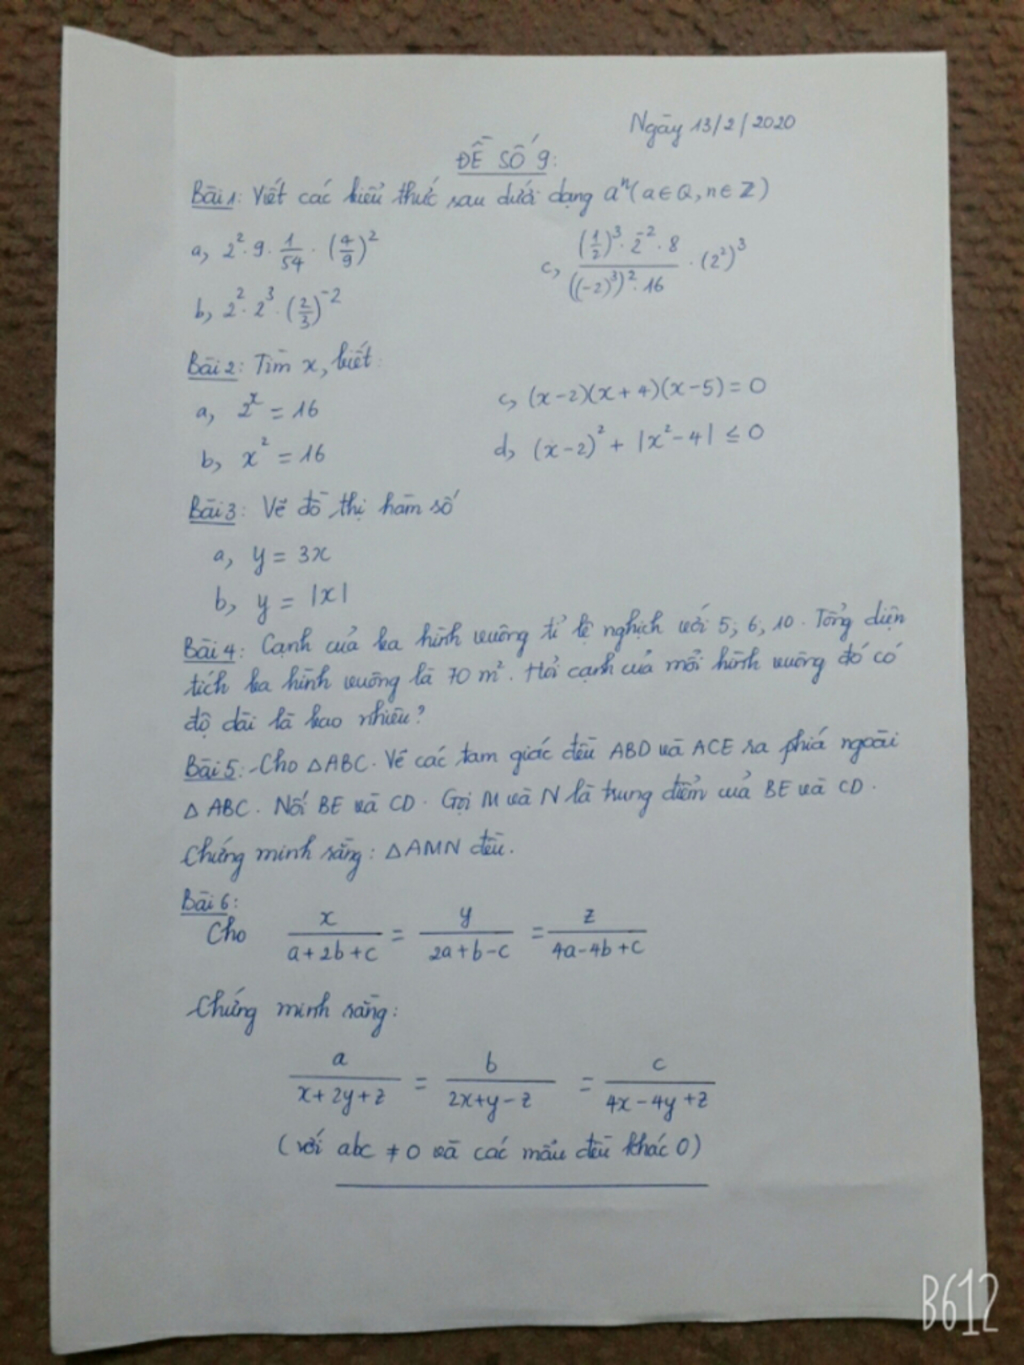 Ngày 13/2/2020
ĐỀ SỐ 9:
Bài 1: Viết các biểu thức sau dưới dạng aⁿ (a ∈ Q, n ∈ Z)
a, 2² . 9 . 1/54 . (4/9)²
c, ((1/2)³ . 2⁻² . 8) / (((-2)³)² . 16) . (2²)³
b, 2² . 2³ . (2/3)⁻²
Bài 2: Tìm x, biết:
a, 2ˣ = 16
c, (x-2)(x+4)(x-5) = 0
b, x² = 16
d, (x-2)² + |x²-4| ≤ 0
Bài 3: Vẽ đồ thị hàm số
a, y = 3x
b, y = |x|
Bài 4: Cạnh của ba hình vuông tỉ lệ nghịch với 5; 6; 10. Tổng diện
tích ba hình vuông là 70 m². Hỏi cạnh của mỗi hình vuông đó có
độ dài là bao nhiêu?
Bài 5: Cho △ABC. Vẽ các tam giác đều ABD và ACE ra phía ngoài
△ABC. Nối BE và CD. Gọi M và N là trung điểm của BE và CD.
Chứng minh rằng: △AMN đều.
Bài 6:
Cho x/(a+2b+c) = y/(2a+b-c) = z/(4a-4b+c)
Chứng minh rằng:
a/(x+2y+z) = b/(2x+y-z) = c/(4x-4y+z)
(với abc ≠ 0 và các mẫu đều khác 0)
B612